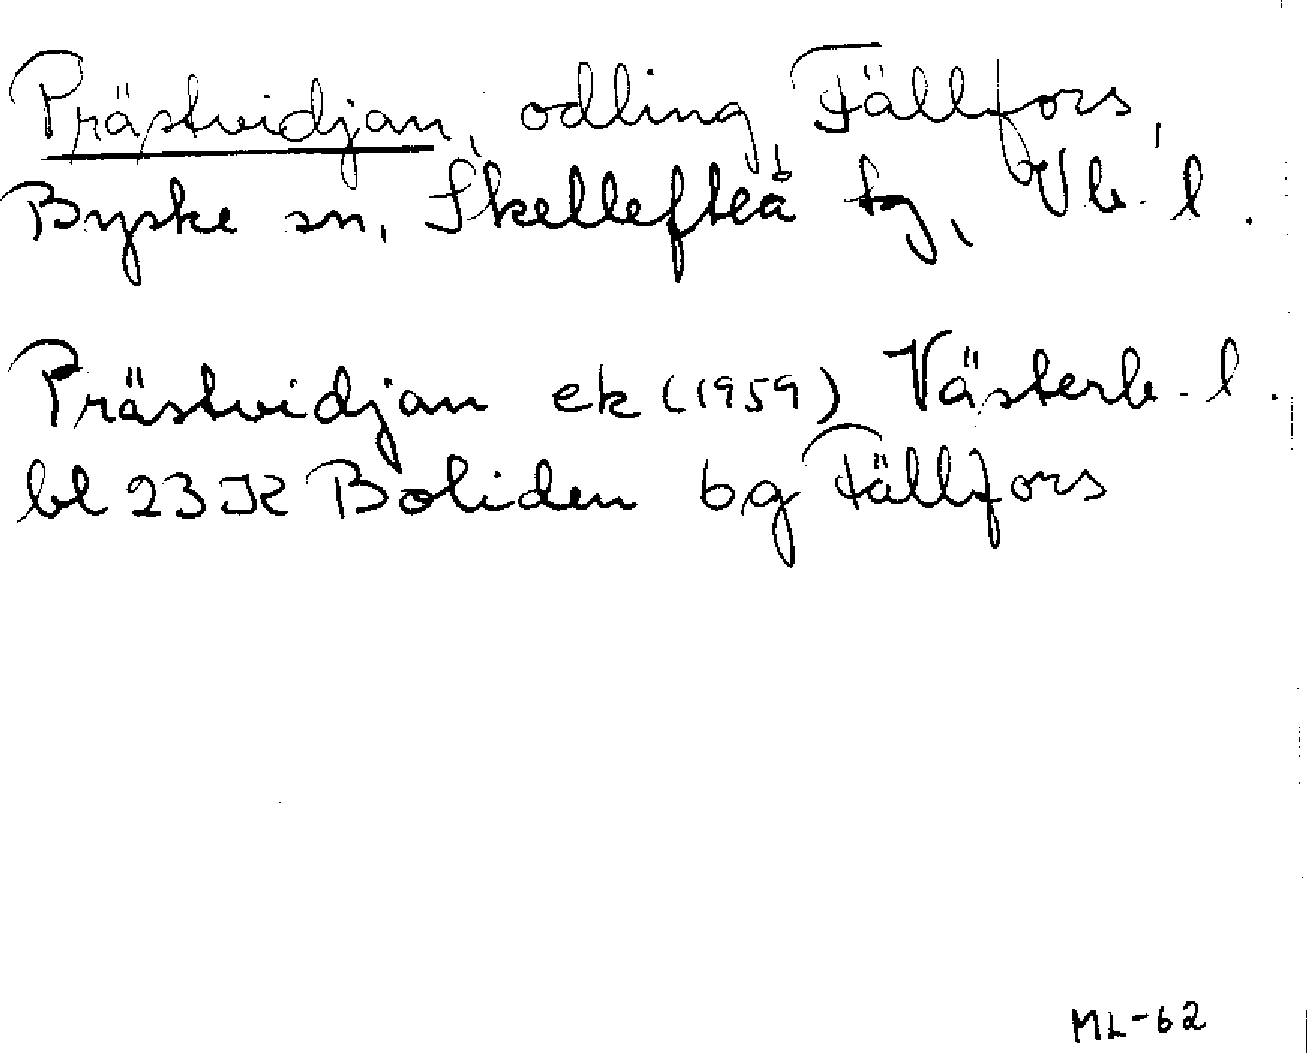 Prästvidjan, odling Fällfors,
Byske sn, Skellefteå tg, Vb. l.
Prästvidjan ek (1959) Västerb. l.
bl 23 K Boliden bg Fällfors
ML-62